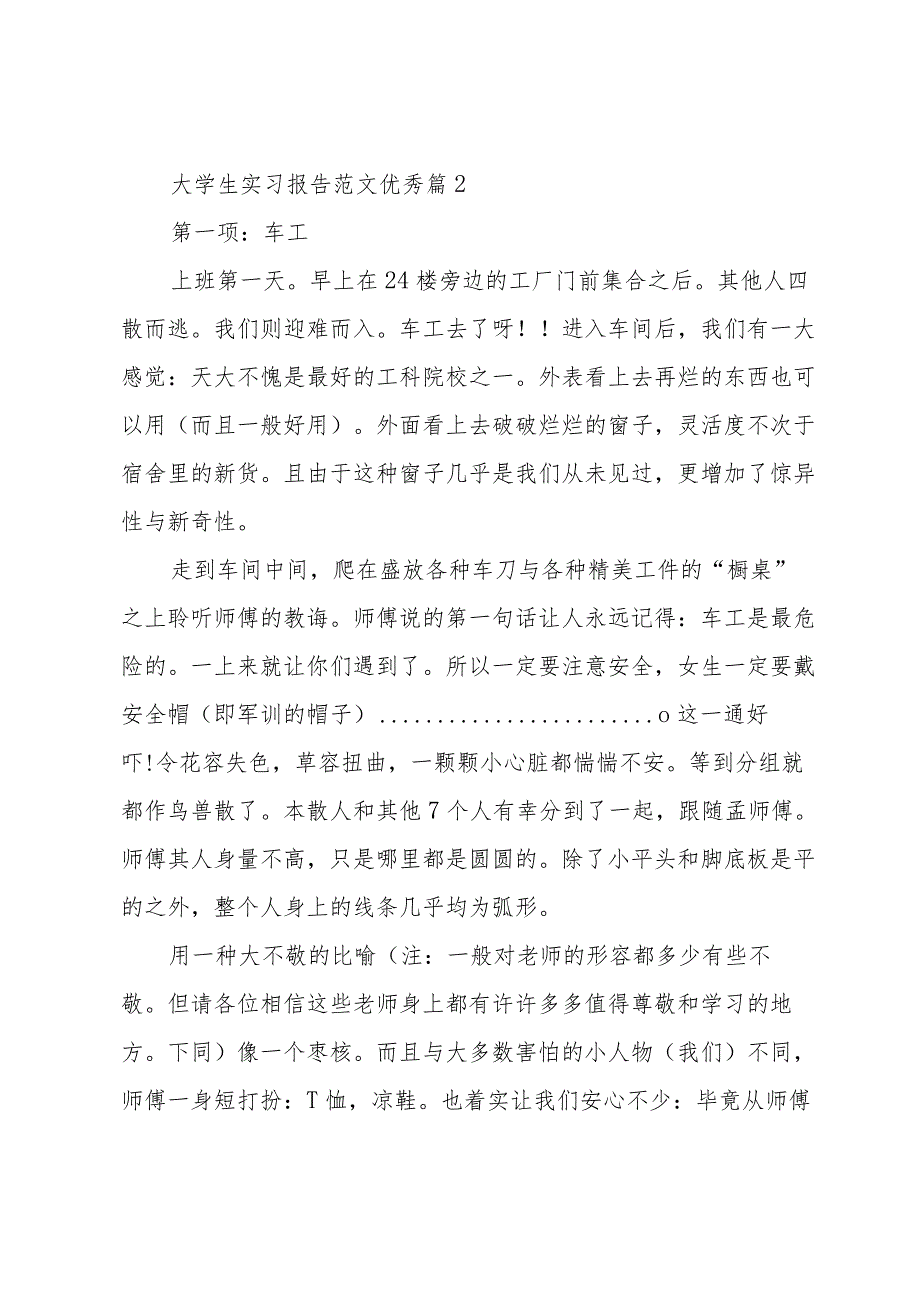 大学生实习报告范文优秀篇2
第一项：车工
上班第一天。早上在24楼旁边的工厂门前集合之后。其他人四
散而逃。我们则迎难而入。车工去了呀！！进入车间后，我们有一大
感觉：天大不愧是最好的工科院校之一。外表看上去再烂的东西也可
以用（而且一般好用）。外面看上去破破烂烂的窗子，灵活度不次于
宿舍里的新货。且由于这种窗子几乎是我们从未见过，更增加了惊异
性与新奇性。
走到车间中间，爬在盛放各种车刀与各种精美工件的“橱桌”
之上聆听师傅的教诲。师傅说的第一句话让人永远记得：车工是最危
险的。一上来就让你们遇到了。所以一定要注意安全，女生一定要戴
安全帽（即军训的帽子）........................o这一通好
吓!令花容失色，草容扭曲，一颗颗小心脏都惴惴不安。等到分组就
都作鸟兽散了。本散人和其他7个人有幸分到了一起，跟随孟师傅。
师傅其人身量不高，只是哪里都是圆圆的。除了小平头和脚底板是平
的之外，整个人身上的线条几乎均为弧形。
用一种大不敬的比喻（注：一般对老师的形容都多少有些不
敬。但请各位相信这些老师身上都有许许多多值得尊敬和学习的地
方。下同）像一个枣核。而且与大多数害怕的小人物（我们）不同，
师傅一身短打扮：T恤，凉鞋。也着实让我们安心不少：毕竟从师傅